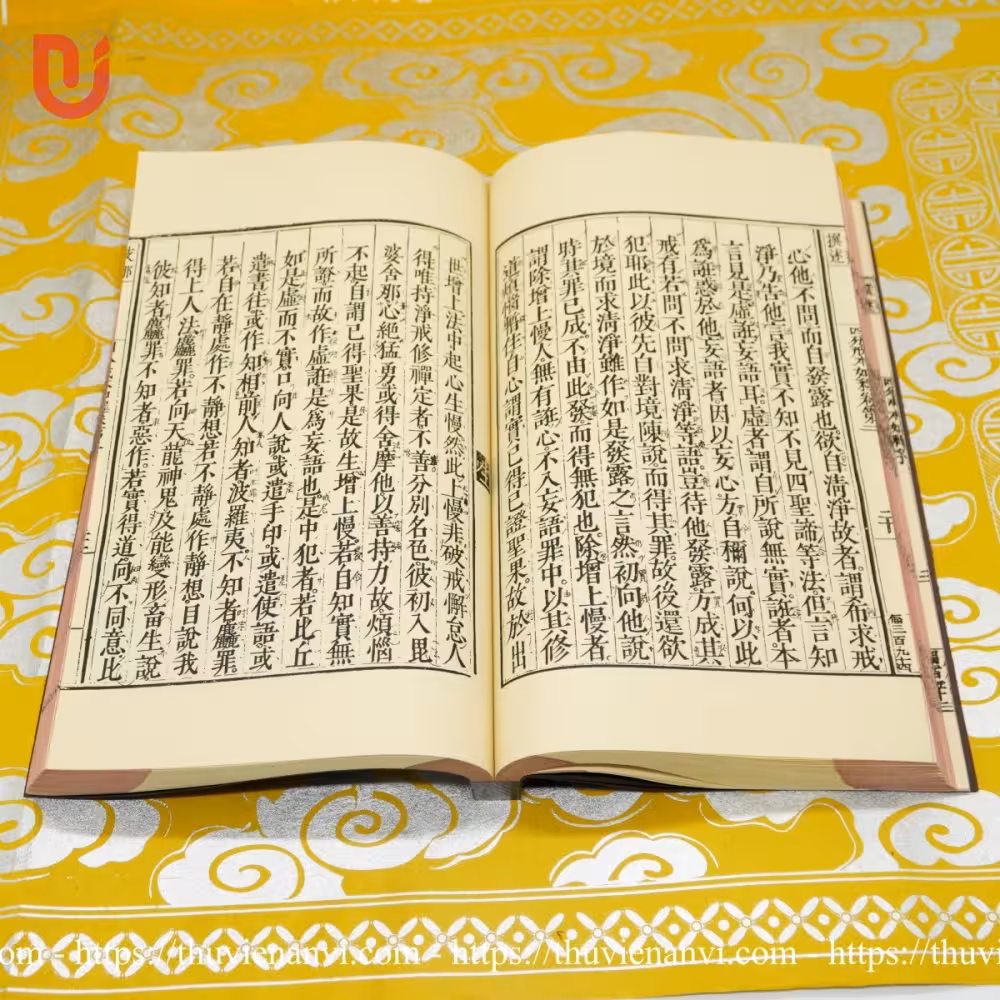 撰述
心他不問而自發露也欲自清淨故者。謂希求戒
淨乃告他言我實不知不見四聖諦等法。但言知
言見是虛誑妄語耳。虛者。謂自所說無實。誑者。本
爲誑惑於他。妄語者。因以妄心方自稱說。何以此
戒有若問不問求清淨等語。豈待他發露。方成其
犯耶。此以彼先自對境陳說。而得其罪。故後還欲
於境而求清淨。雖作如是發露之言。然初向他說
時。其罪已成。不由此發而得無犯也。除增上慢者。
謂除增上慢人無有誑心。不入妄語罪中。以其修
世增上法中起心生慢。然此上慢。非破戒懈怠人
得。唯持淨戒修禪定者。不善分別名色。彼初入毘
婆舍那。心絕猛勇。或得舍摩他。以善持力故。煩惱
不起。自謂已得聖果。是故生增上慢。若自知實無
所證。而故作虛誑。是爲妄語也。是中犯者。若比丘
如是虛而不實。口向人說。或遣手印。或遣使語。或
遣書往。或作知想。前人知者。波羅夷。不知者。麤罪。
若自在靜處作不靜想。若不靜處作靜想。口說我
得上人法。麤罪。若向天龍神鬼及能變形畜生說。
彼知者。麤罪。不知者。惡作。若實得道。向不同意比
https://thuvienanvi.com - https://thuvienanvi.com - https://thuvi